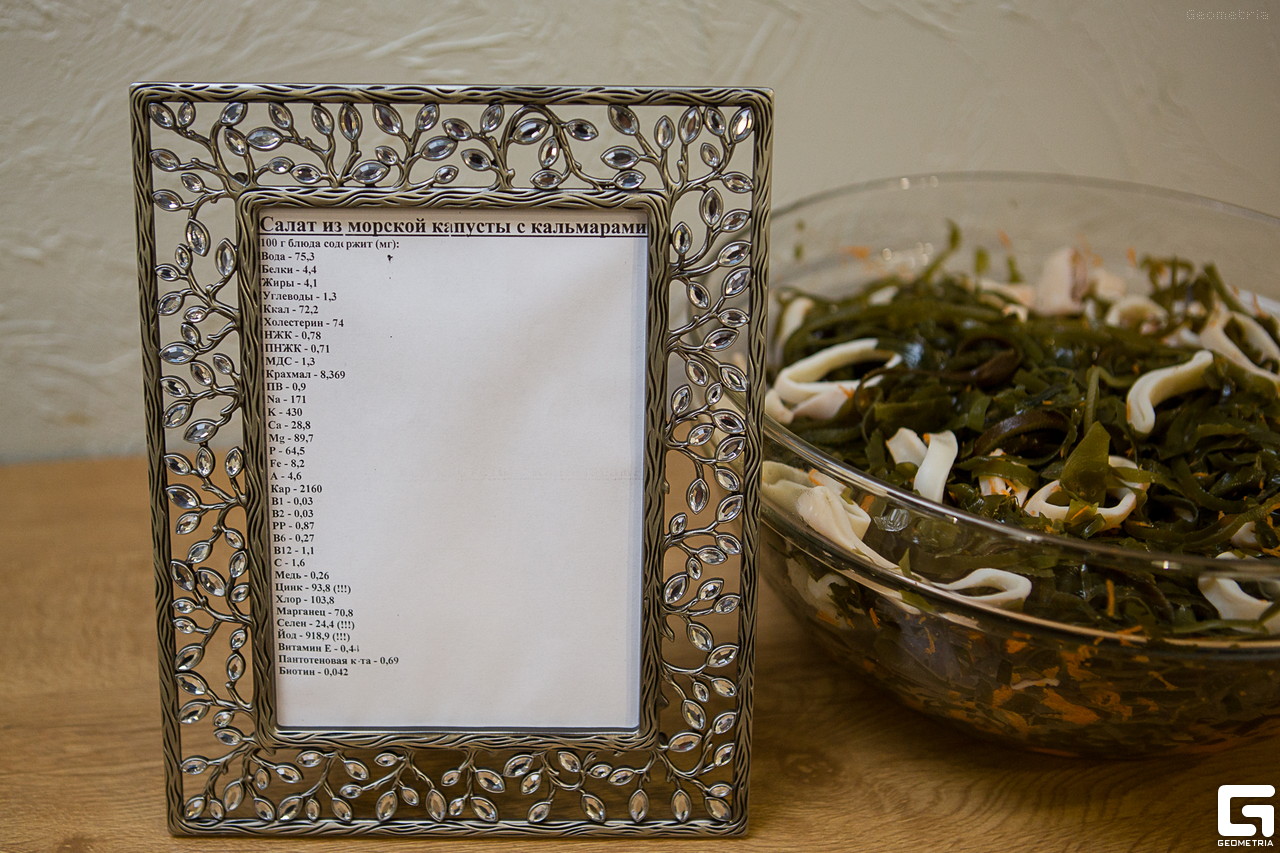 Geometria
Салат из морской капусты с кальмарами
100 г блюда содержит (мг):
Вода - 75,3
Белки - 4,4
Жиры - 4,1
Углеводы - 1,3
Ккал - 72,2
Холестерин - 74
НЖК - 0,78
ПНЖК - 0,71
МДС - 1,3
Крахмал - 8,369
ПВ - 0,9
Na - 171
K - 430
Ca - 28,8
Mg - 89,7
P - 64,5
Fe - 8,2
A - 4,6
Кар - 2160
B1 - 0,03
B2 - 0,03
PP - 0,87
B6 - 0,27
B12 - 1,1
C - 1,6
Медь - 0,26
Цинк - 93,8 (!!!)
Хлор - 103,8
Марганец - 70,8
Селен - 24,4 (!!!)
Йод - 918,9 (!!!)
Витамин Е - 0,44
Пантотеновая к-та - 0,69
Биотин - 0,042
GEOMETRIA